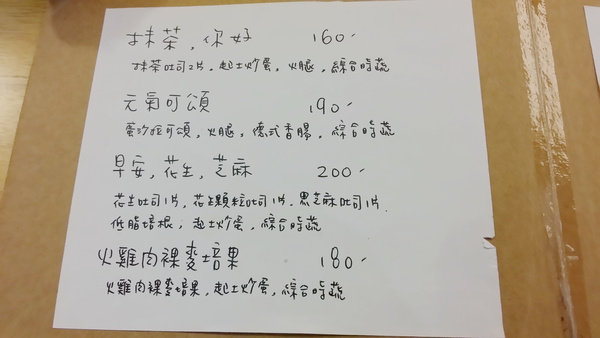 抹茶,你好 160-
抹茶吐司2片,起士炒蛋,火腿,綜合時蔬
元氣可頌 190-
蛋沙拉可頌,火腿,德式香腸,綜合時蔬
早安,花生,芝麻 200-
花生吐司1片,花生顆粒吐司1片,黑芝麻吐司1片
低脂培根,起士炒蛋,綜合時蔬
火雞肉裸麥培果 180-
火雞肉裸麥培果,起士炒蛋,綜合時蔬